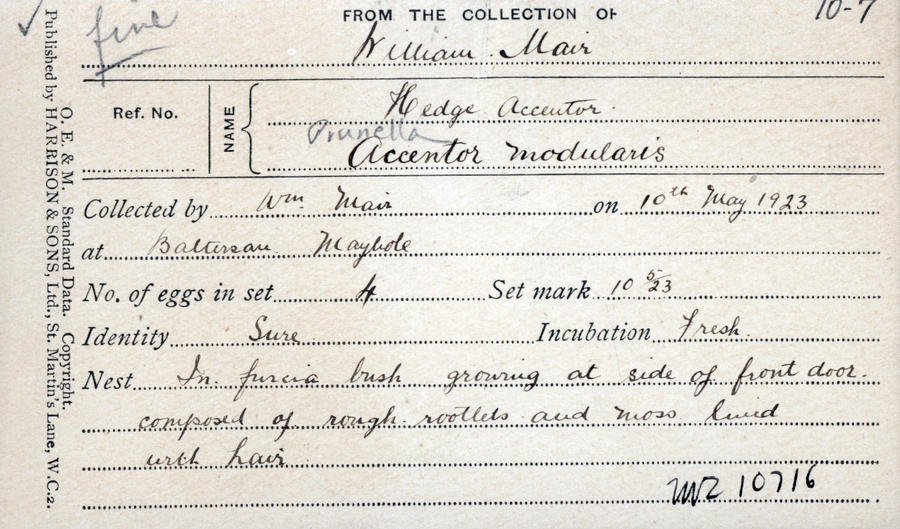 fine
FROM THE COLLECTION OF
10-7
William Mair
Ref. No.
NAME
Hedge Accentor.
Prunella
Accentor modularis
Collected by Wm Mair on 10th May 1923
at Baltersan Maybole
No. of eggs in set 4 Set mark 10 5/23
Identity Sure Incubation Fresh.
Nest In. furcia bush growing at side of front door.
composed of rough rootlets and moss lined
with hair
MZ 10716
O. E. & M. Standard Data. Copyright.
Published by HARRISON & SONS, Ltd., St. Martin's Lane, W.C.2.